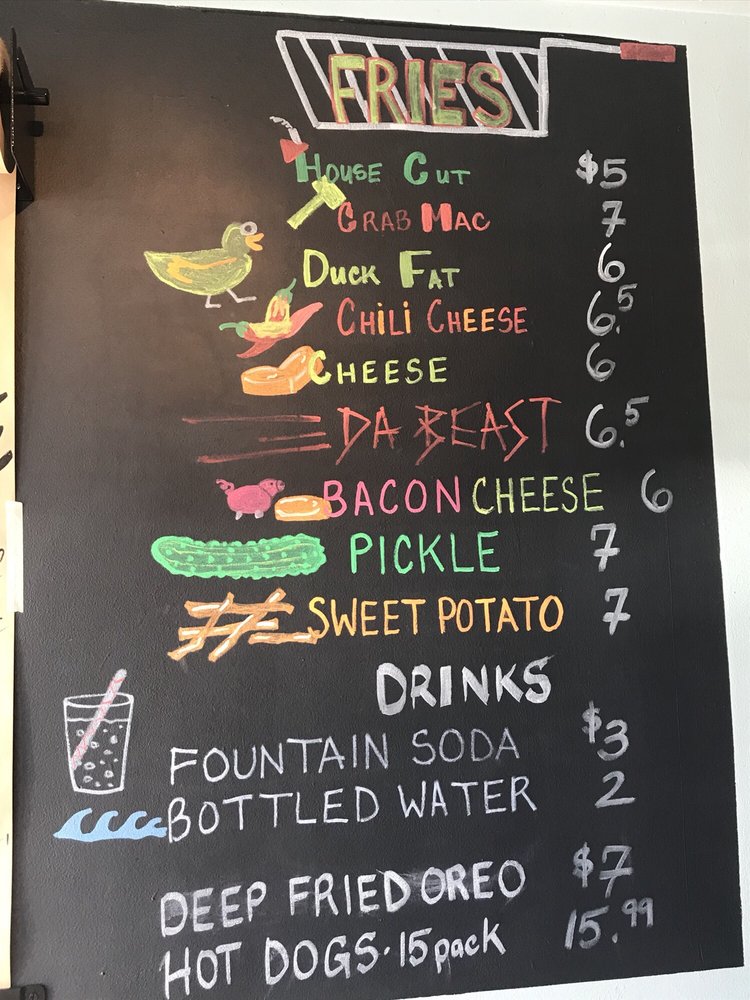 FRIES
HOUSE CUT $5
CRAB MAC 7
DUCK FAT 6
CHILI CHEESE 6.5
CHEESE 6
DA BEAST 6.5
BACON CHEESE 6
PICKLE 7
SWEET POTATO 7
DRINKS
FOUNTAIN SODA $3
BOTTLED WATER 2
DEEP FRIED OREO $7
HOT DOGS·15 pack 15.99